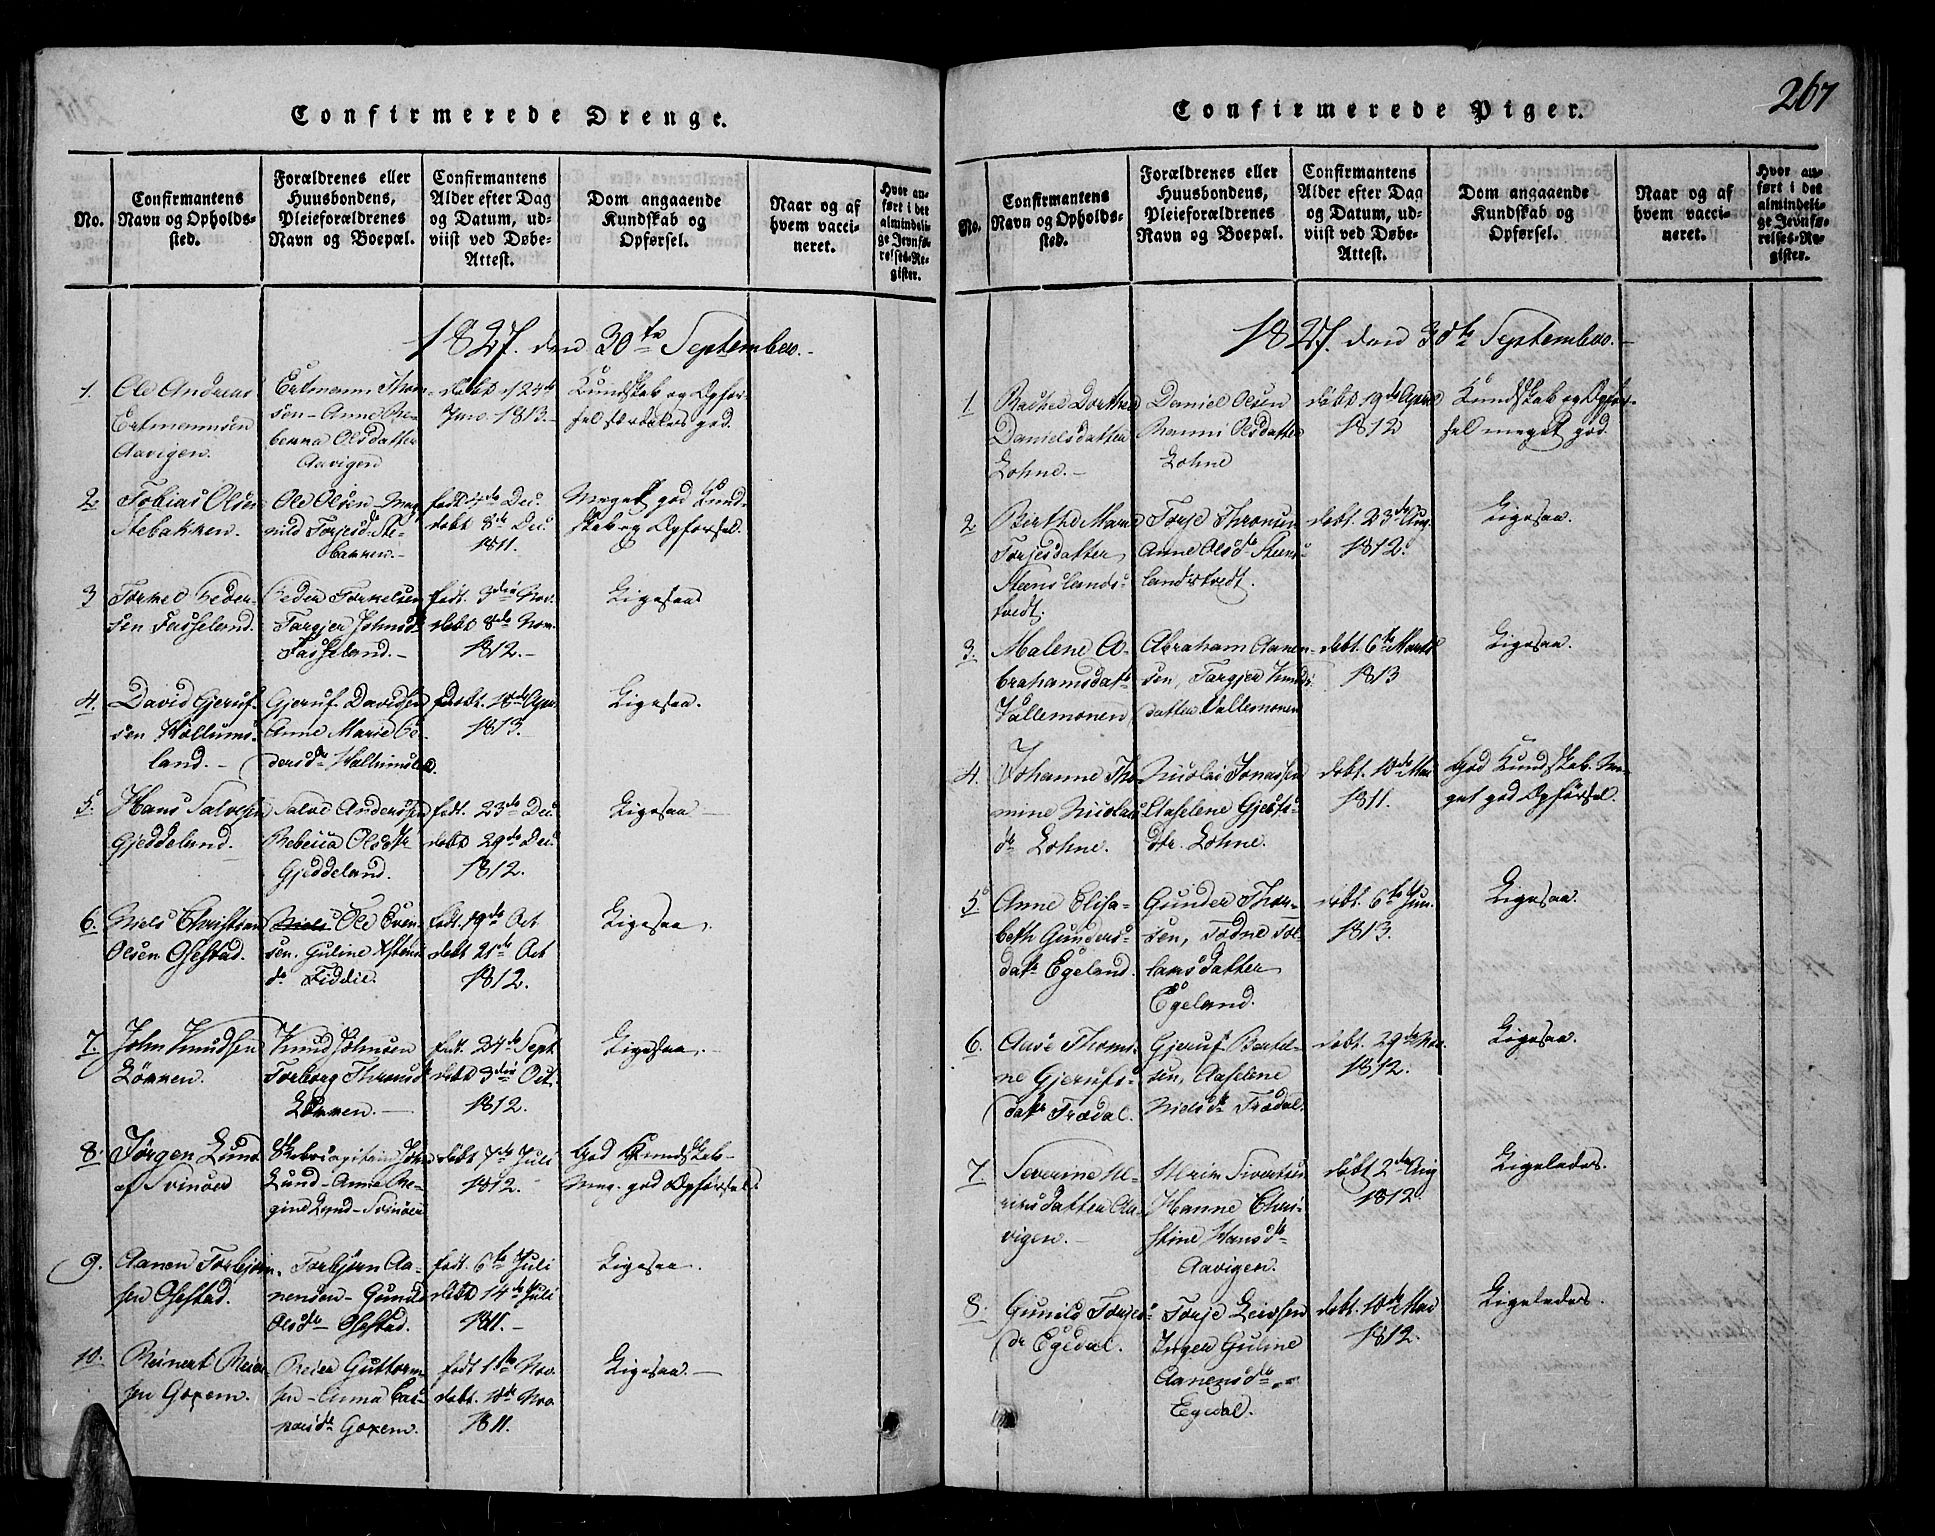 Confirmerede Drenge.
No.
Confirmantens
Navn og Opholds-
sted.
Forældrenes eller
Huusbondens,
Pleieforældrenes
Navn og Boepæl.
Confirmantens
Alder efter Dag
og Datum, ud-
viist ved Døbe-
Attest.
Dom angaaende
Kundskab og
Opførsel.
Naar og af
hvem vacci-
neret.
Hvor an-
ført i det
almindeli-
ge Jevnfø-
relses-Re-
gister.
1827. den 30te September.
1. Ole Andreas
Ertmannsen
Aavigen.
Ertmann Thom-
sen - Anne Re-
bekka Olsdatter
Aavigen
døbt 24de
Jan. 1813.
Kundskab og Opfør-
sel særdeles god.
2. Tobias Olsen
Stebakken.
Ole Olsen - Mag-
nild Torjesd. Ste-
bakken.
født 4de Dec.
døbt 8de Dec.
1811.
Meget god Kund-
skab og Opførsel.
3 Torkel Peder-
sen Fasseland.
Peder Torkelsen
Targjer Johnsd
Fasseland.
født. 3die Nov.
døbt 8de Nov.
1812.
Ligesaa
4. David Gjeruf-
sen Hollums-
land.
Gjeruf Davidsen
Anne Marie Pe-
dersdr Hollumsland.
døbt. 18de Apr.
1813.
Ligesaa.
5. Hans Salvesen
Gjeddeland.
Salve Anderssen
Rebecca Olsdtr
Gjeddeland.
født. 23de Dec.
døbt 29de Dec.
1812.
Ligesaa
6. Niels Christian
Olsen Ofestad.
Niels Ole Even-
sen. Guline Astens
dr Fiddie.
født. 19de Oct
døbt 21de Oct
1812.
Ligesaa.
7. John Knudsen
Løkken.
Knud Johnsen
Torborg Thronsd
Løkken.
født. 24de Sept.
døbt 3die Oct.
1812.
Ligesaa.
8. Jørgen Lund
af Svinøer
Skibscapitain John
Lund - Anne Re-
gine Lund - Svinøer
døbt 7de Juli
1812.
God Kundskab
Meg. god Opførsel.
9. Aanen Torbjørn-
sen Ofestad.
Torbjørn Aa-
nensen - Gunild
Olsdr Ofestad.
født 6te Juli
døbt 14de Juli
1811.
Ligesaa.
10. Reinert Reier-
sen Goxem.
Reier Guttorm-
sen - Anna Cas-
parsdr Goxem.
født 1ste Nov.
døbt. 10de Nov.
1811.
Ligesaa.
267
Confirmerede Piger.
No.
Confirmantens
Navn og Opholds-
sted.
Forældrenes eller
Huusbondens,
Pleieforældrenes
Navn og Boepæl.
Confirmantens
Alder efter Dag
og Datum, ud-
viist ved Døbe-
Attest.
Dom angaaende
Kundskab og
Opførsel.
Naar og af
hvem vacci-
neret.
Hvor an-
ført i det
almindeli-
ge Jevnfø-
relses-Re-
gister.
1827. den 30te September.
1 Rachel Dorthea
Danielsdatter
Lohne.
Daniel Olsen
Ranni Olsdatter
Lohne
døbt 19de April
1812
Kundskab og Opfør-
sel meget god.
2. Berthe Marie
Torjesdatter
Steenslands-
kvedt.
Torje Thronsen
Anne Olsdr Steens-
landskvedt.
døbt. 23de Aug.
1812.
Ligesaa.
3. Malene A-
brahamsdatr
Vallemonen
Abraham Aanen-
sen, Targjer Knuds-
datter Vallemonen
døbt. 6te Marts
1813
Ligesaa.
4. Johanne Tho-
mine Nicolai
dr Lohne.
Nicolai Jonassen
Aaselene Gjerufs-
dtr. Lohne.
døbt. 10de Mai
1811.
God Kundskab. Me-
get god Opførsel.
5. Anne Elisa-
beth Gunders-
datr Egeland.
Gunder Thor-
sen, Todne Tol-
lansdatter
Egeland.
døbt. 6te Jun.
1813.
Ligesaa.
6. Aase Thoms-
ne Gjerufs-
datr Trædal.
Gjeruf Bertel-
sen, Aaselene
Nielsdr Trædal.
døbt. 29de Nov.
1812.
Ligesaa.
7. Severine Me-
rinsdatter Aa-
vigen.
Merin Sivertsen
Hanne Chri-
stine Hansdr
Aavigen.
døbt 2den Aug
1812.
Ligeledes.
8. Gunild Torjes-
dr Egedal.
Torje Leivsen
Inger Guline
Aanensdr
Egedal.
døbt. 10de Mai
1812.
Ligeledes.